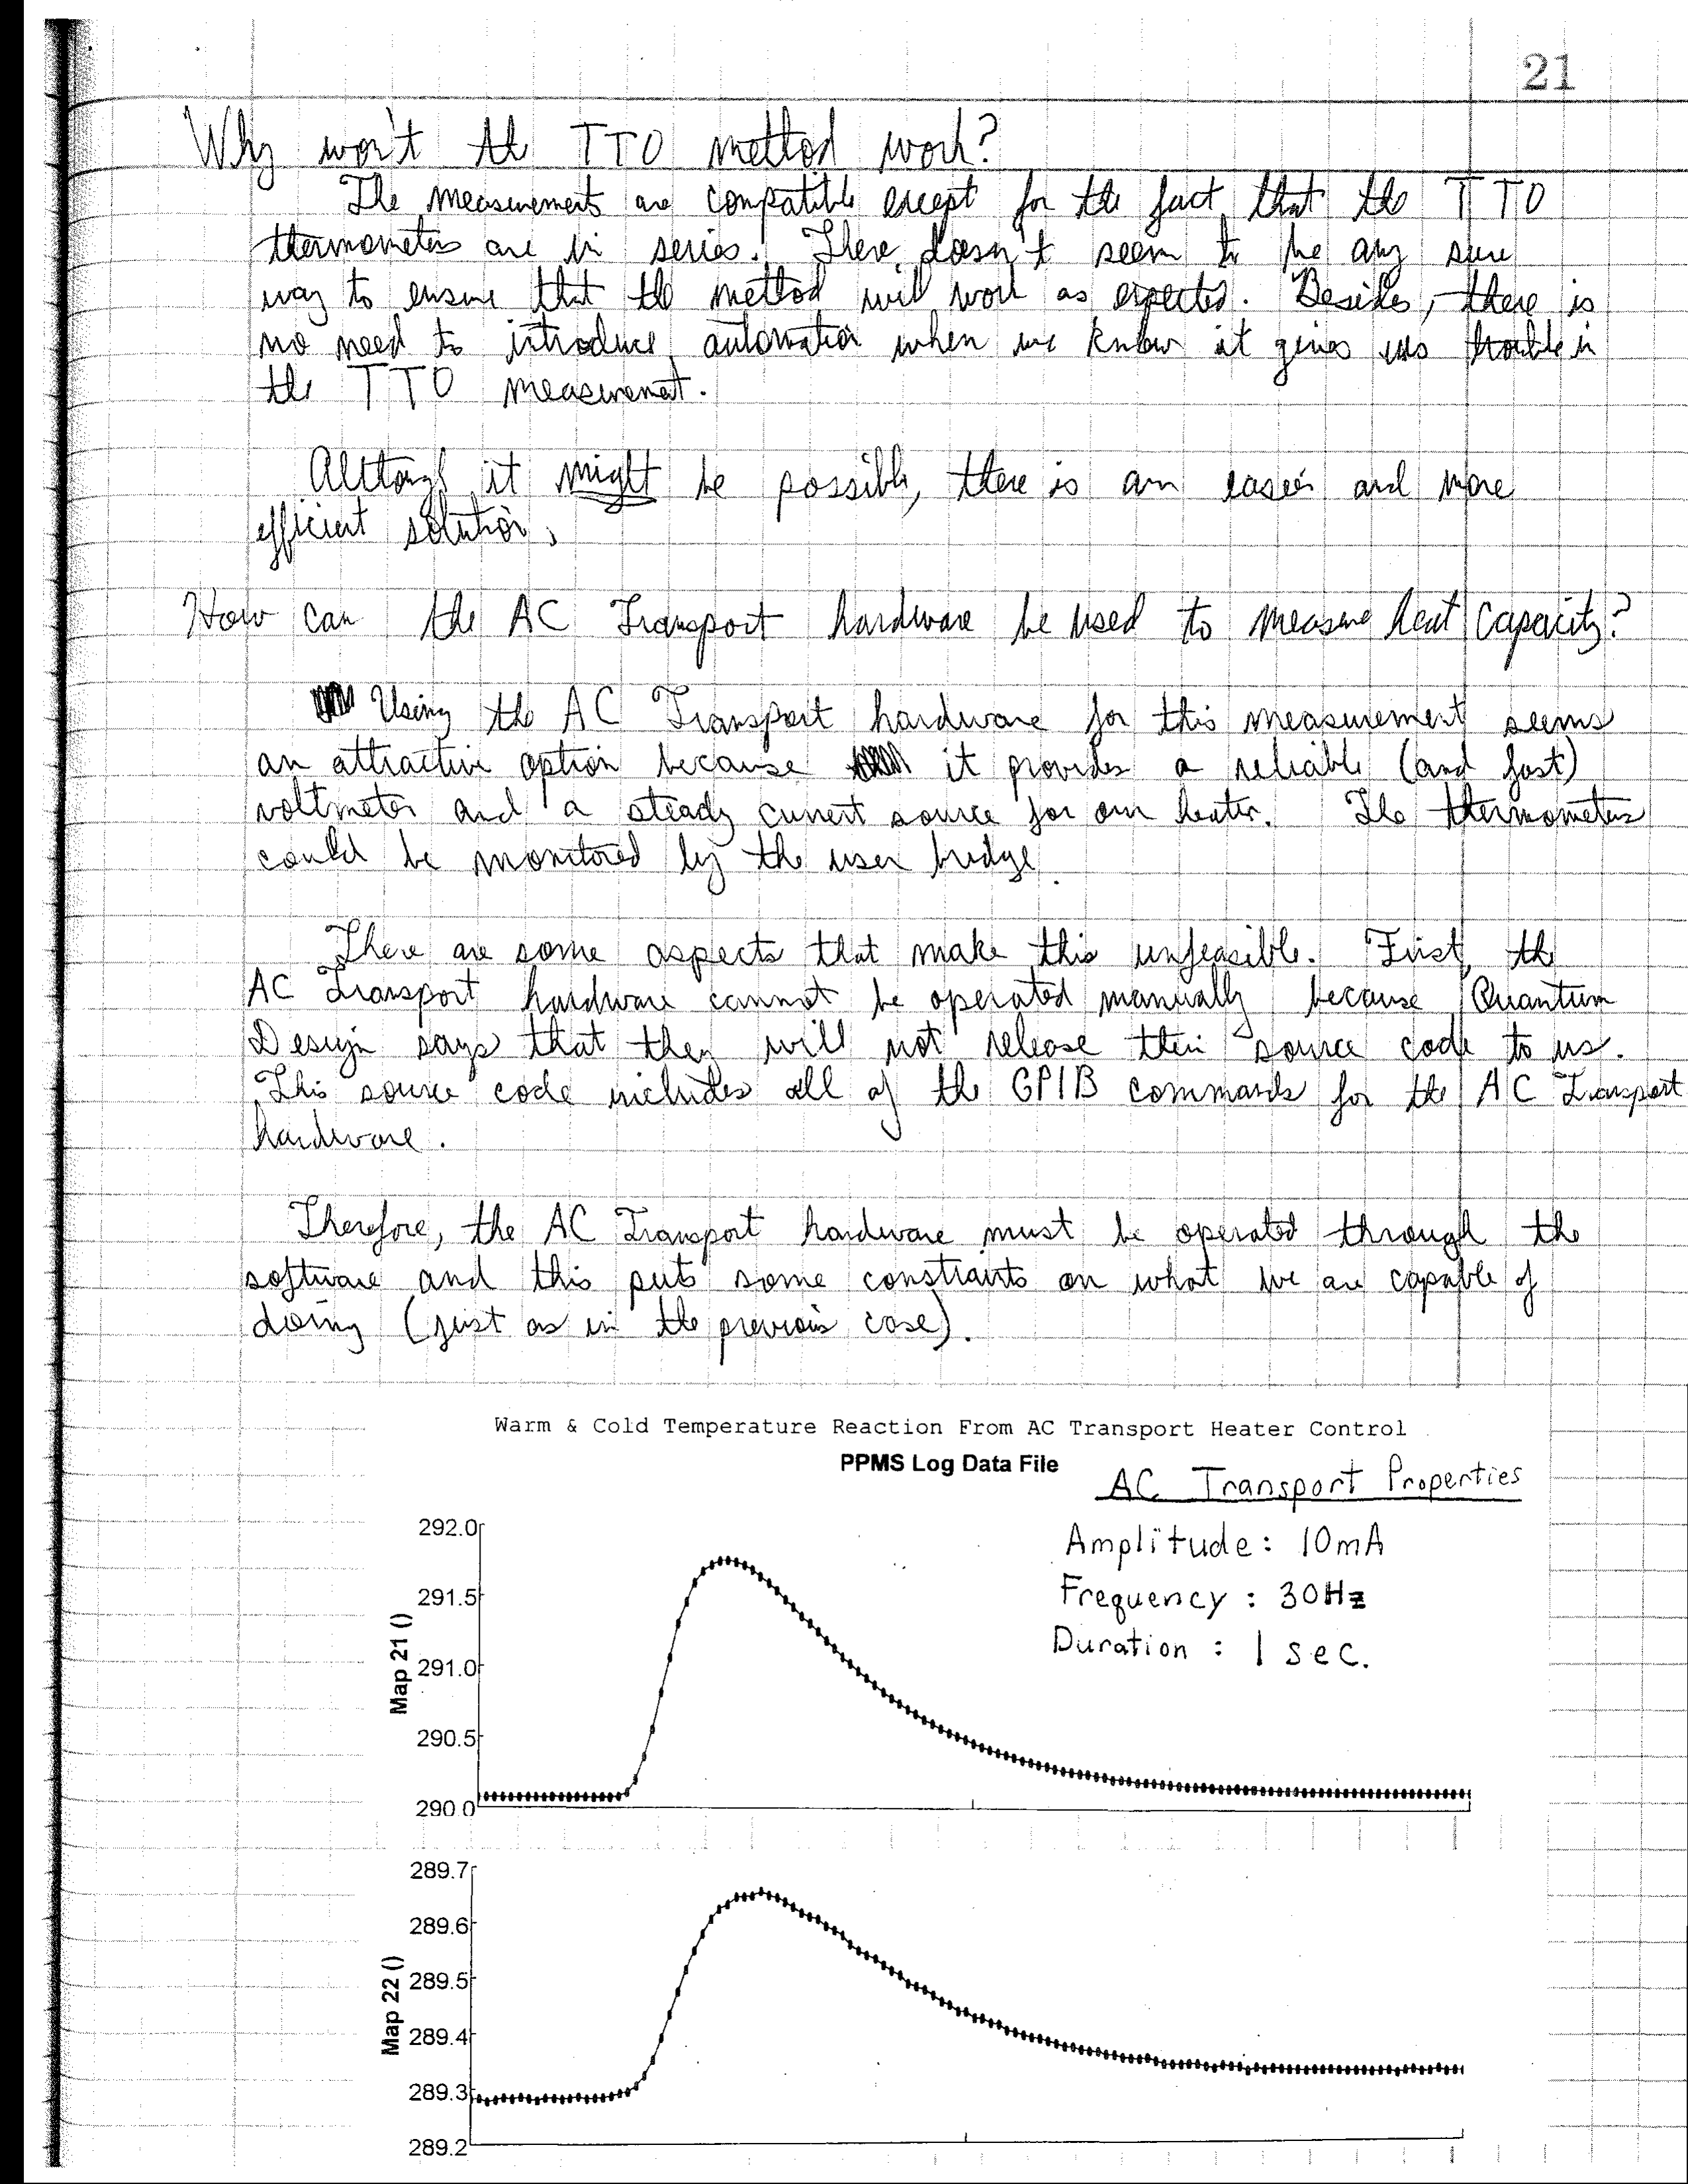 21
Why won't the TTO method work?
The measurements are compatible except for the fact that the TTO
thermometers are in series. There doesn't seem to be any sure
way to ensure that the method will work as expected. Besides, there is
no need to introduce automation when we know it gives us trouble in
the TTO measurement.
Although it might be possible, there is an easier and more
efficient solution.
How can the AC Transport hardware be used to measure heat capacity?
Using the AC Transport hardware for this measurement seems
an attractive option because it provides a reliable (and fast)
voltmeter and a steady current source for our heater. The thermometers
could be monitored by the user bridge.
There are some aspects that make this unfeasible. First, the
AC Transport hardware cannot be operated manually because Quantum
Design says that they will not release their source code to us.
This source code includes all of the GPIB commands for the AC Transport
hardware.
Therefore, the AC Transport hardware must be operated through the
software and this puts some constraints on what we are capable of
doing (just as in the previous case).
Warm & Cold Temperature Reaction From AC Transport Heater Control
PPMS Log Data File
AC Transport Properties
Amplitude: 10mA
Frequency: 30Hz
Duration: 1 sec.
Map 21 ()
292.0
291.5
291.0
290.5
290.0
Map 22 ()
289.7
289.6
289.5
289.4
289.3
289.2